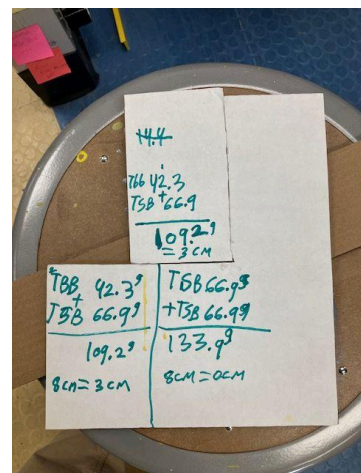 14.4
TBB 42.3
TSB + 66.9
109.2g
= 3 CM
TBB 42.3g
+
TSB 66.9g
109.2g
8cm = 3 CM
TSB 66.9g
+TSB 66.9g
133.9g
8CM = 0CM